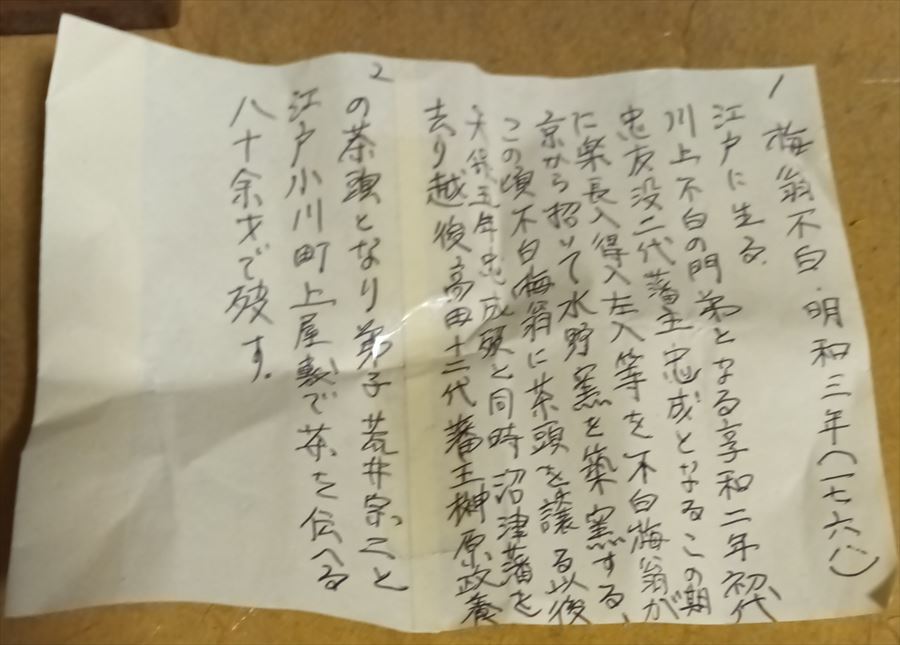 1
梅翁不白・明和三年(一七六六)
江戸に生る.
川上不白の門弟となる享和二年初代
忠友没二代藩主忠成となるこの期
に楽長入得入左入等を不白梅翁が
京から招いて水野窯を築窯する、
この頃不白梅翁に茶頭を譲る以後
天保五年忠成殁と同時沼津藩を
去り越後高田十二代藩主榊原政養
2
の茶頭となり弟子荒井宗二と
江戸小川町上屋敷で茶を伝へる
八十余才で破す.